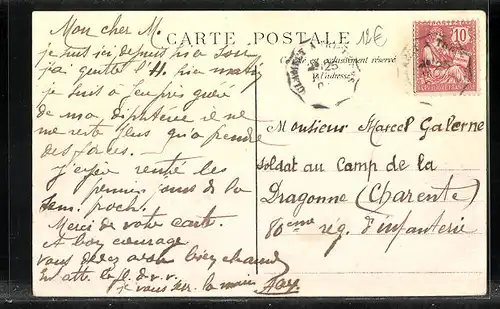 CARTE POSTALE
12€
Ce côté est exclusivement réservé
à l'adresse
10
Mon cher M.
je suis ici depuis hier soir
j'ai quitté l'H. hier matin
je suis à peu près guéri
de ma diphtérie il ne
me reste plus qu'à prendre
des forces.
j'espère les
premiers jours de la
Sem. proch.
Merci de votre carte.
A bon courage
vous devez avoir bien chaud
En att. d. v.
je vous serre la main
Monsieur Marcel Galerne
Soldat au Camp de la
Braconne (Charente)
80ème rég. d'infanterie